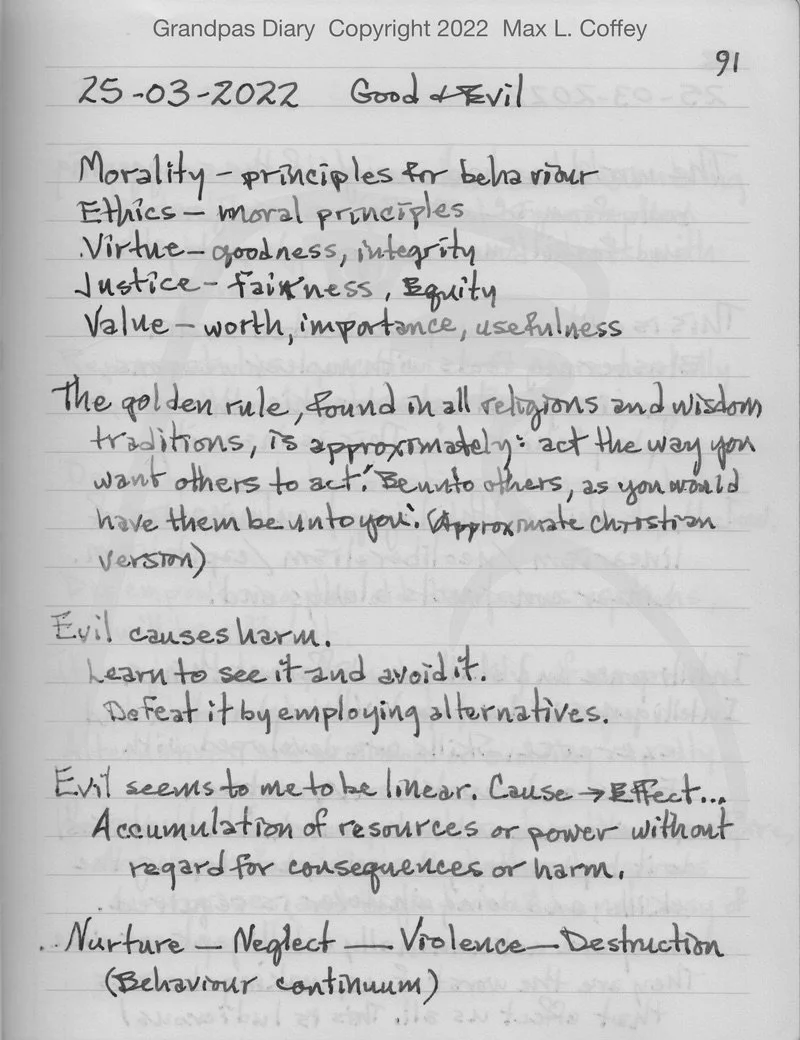 Grandpas Diary Copyright 2022 Max L. Coffey
91
25-03-2022 Good & Evil
Morality - principles for behaviour
Ethics - moral principles
Virtue - goodness, integrity
Justice - fairness, Equity
Value - worth, importance, usefulness
The golden rule, found in all religions and wisdom
traditions, is approximately: act the way you
want others to act.' Be unto others, as you would
have them be unto you'. (Approximate Christian
version)
Evil causes harm.
Learn to see it and avoid it.
Defeat it by employing alternatives.
Evil seems to me to be linear. Cause → Effect...
Accumulation of resources or power without
regard for consequences or harm.
Nurture - Neglect - Violence - Destruction
(Behaviour continuum)